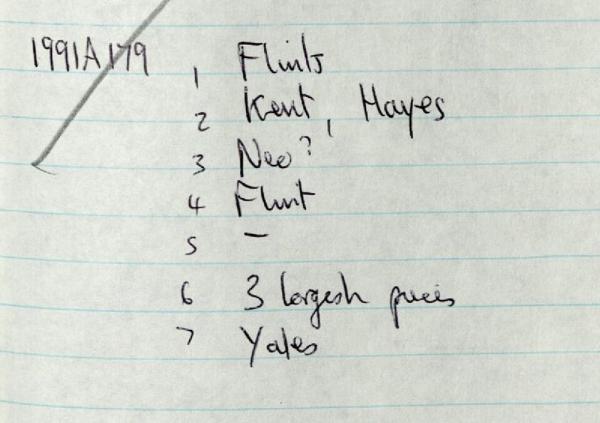 1991A179 1 Flints
2 Kent, Hayes
3 Neo?
4 Flint
5 –
6 3 largish pieces
7 Yates